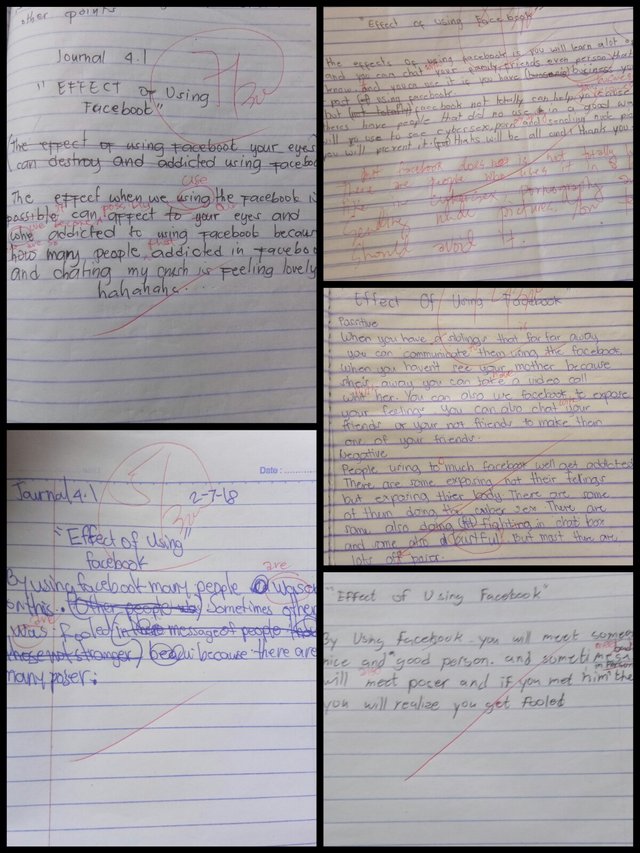 other points
Journal 4.1
" EFFECT of Using
Facebook"
The effect of using Facebook your eyes
can destroy and addicted using facebo
The effect when we using the Facebook is
use
possible can affect to your eyes and
who addicted to using Facebook becaus
how many people addicted in faceboo
that
and chating my crush is feeling lovely
hahahaha....
Date:
Journal 4.1
2-7-18
"Effect of Using"
facebook
are
By using facebook many people was
on this. Other people Sometimes other
was fooled in message of people
these not stranger) because there are
many poser.
"Effect of Using Facebook"
The effects of using facebook is you will learn alot o
and you can chat your family friends even person that
know. and you can use it is you have business
post of using facebook.
but facebook not totally can help
theres have people that did no use in a good w
will you use to see cybersex, porn and sending nude pic
you will prevent it. thats will be all and I thank you
But Facebook does not
There are people who use it in
like in cybersex, Pornography
Sending nude pictures,
Should avoid it.
Effect Of Using Facebook"
Positive
When you have a siblings that far far away
you can communicate them using the facebook
When you havent see your mother because
shes away you can take a video call
have
with her. You can also use facebook to expose
your feelings. You can also chat your
friends or your not friends to make them
one of your friends.
Negative
People using to much facebook well get addicted
There are some exposing not their felings
but exposing thier body There are some
of them doing the cyber sex There are
some also doing fighting in chat box
and some also doubtful. But most there are
lots of poser.
"Effect of Using Facebook"
By Using Facebook you will meet someo
nice and good person. and sometimes
in person
will meet poser and if you met him the
you will realize you get fooled